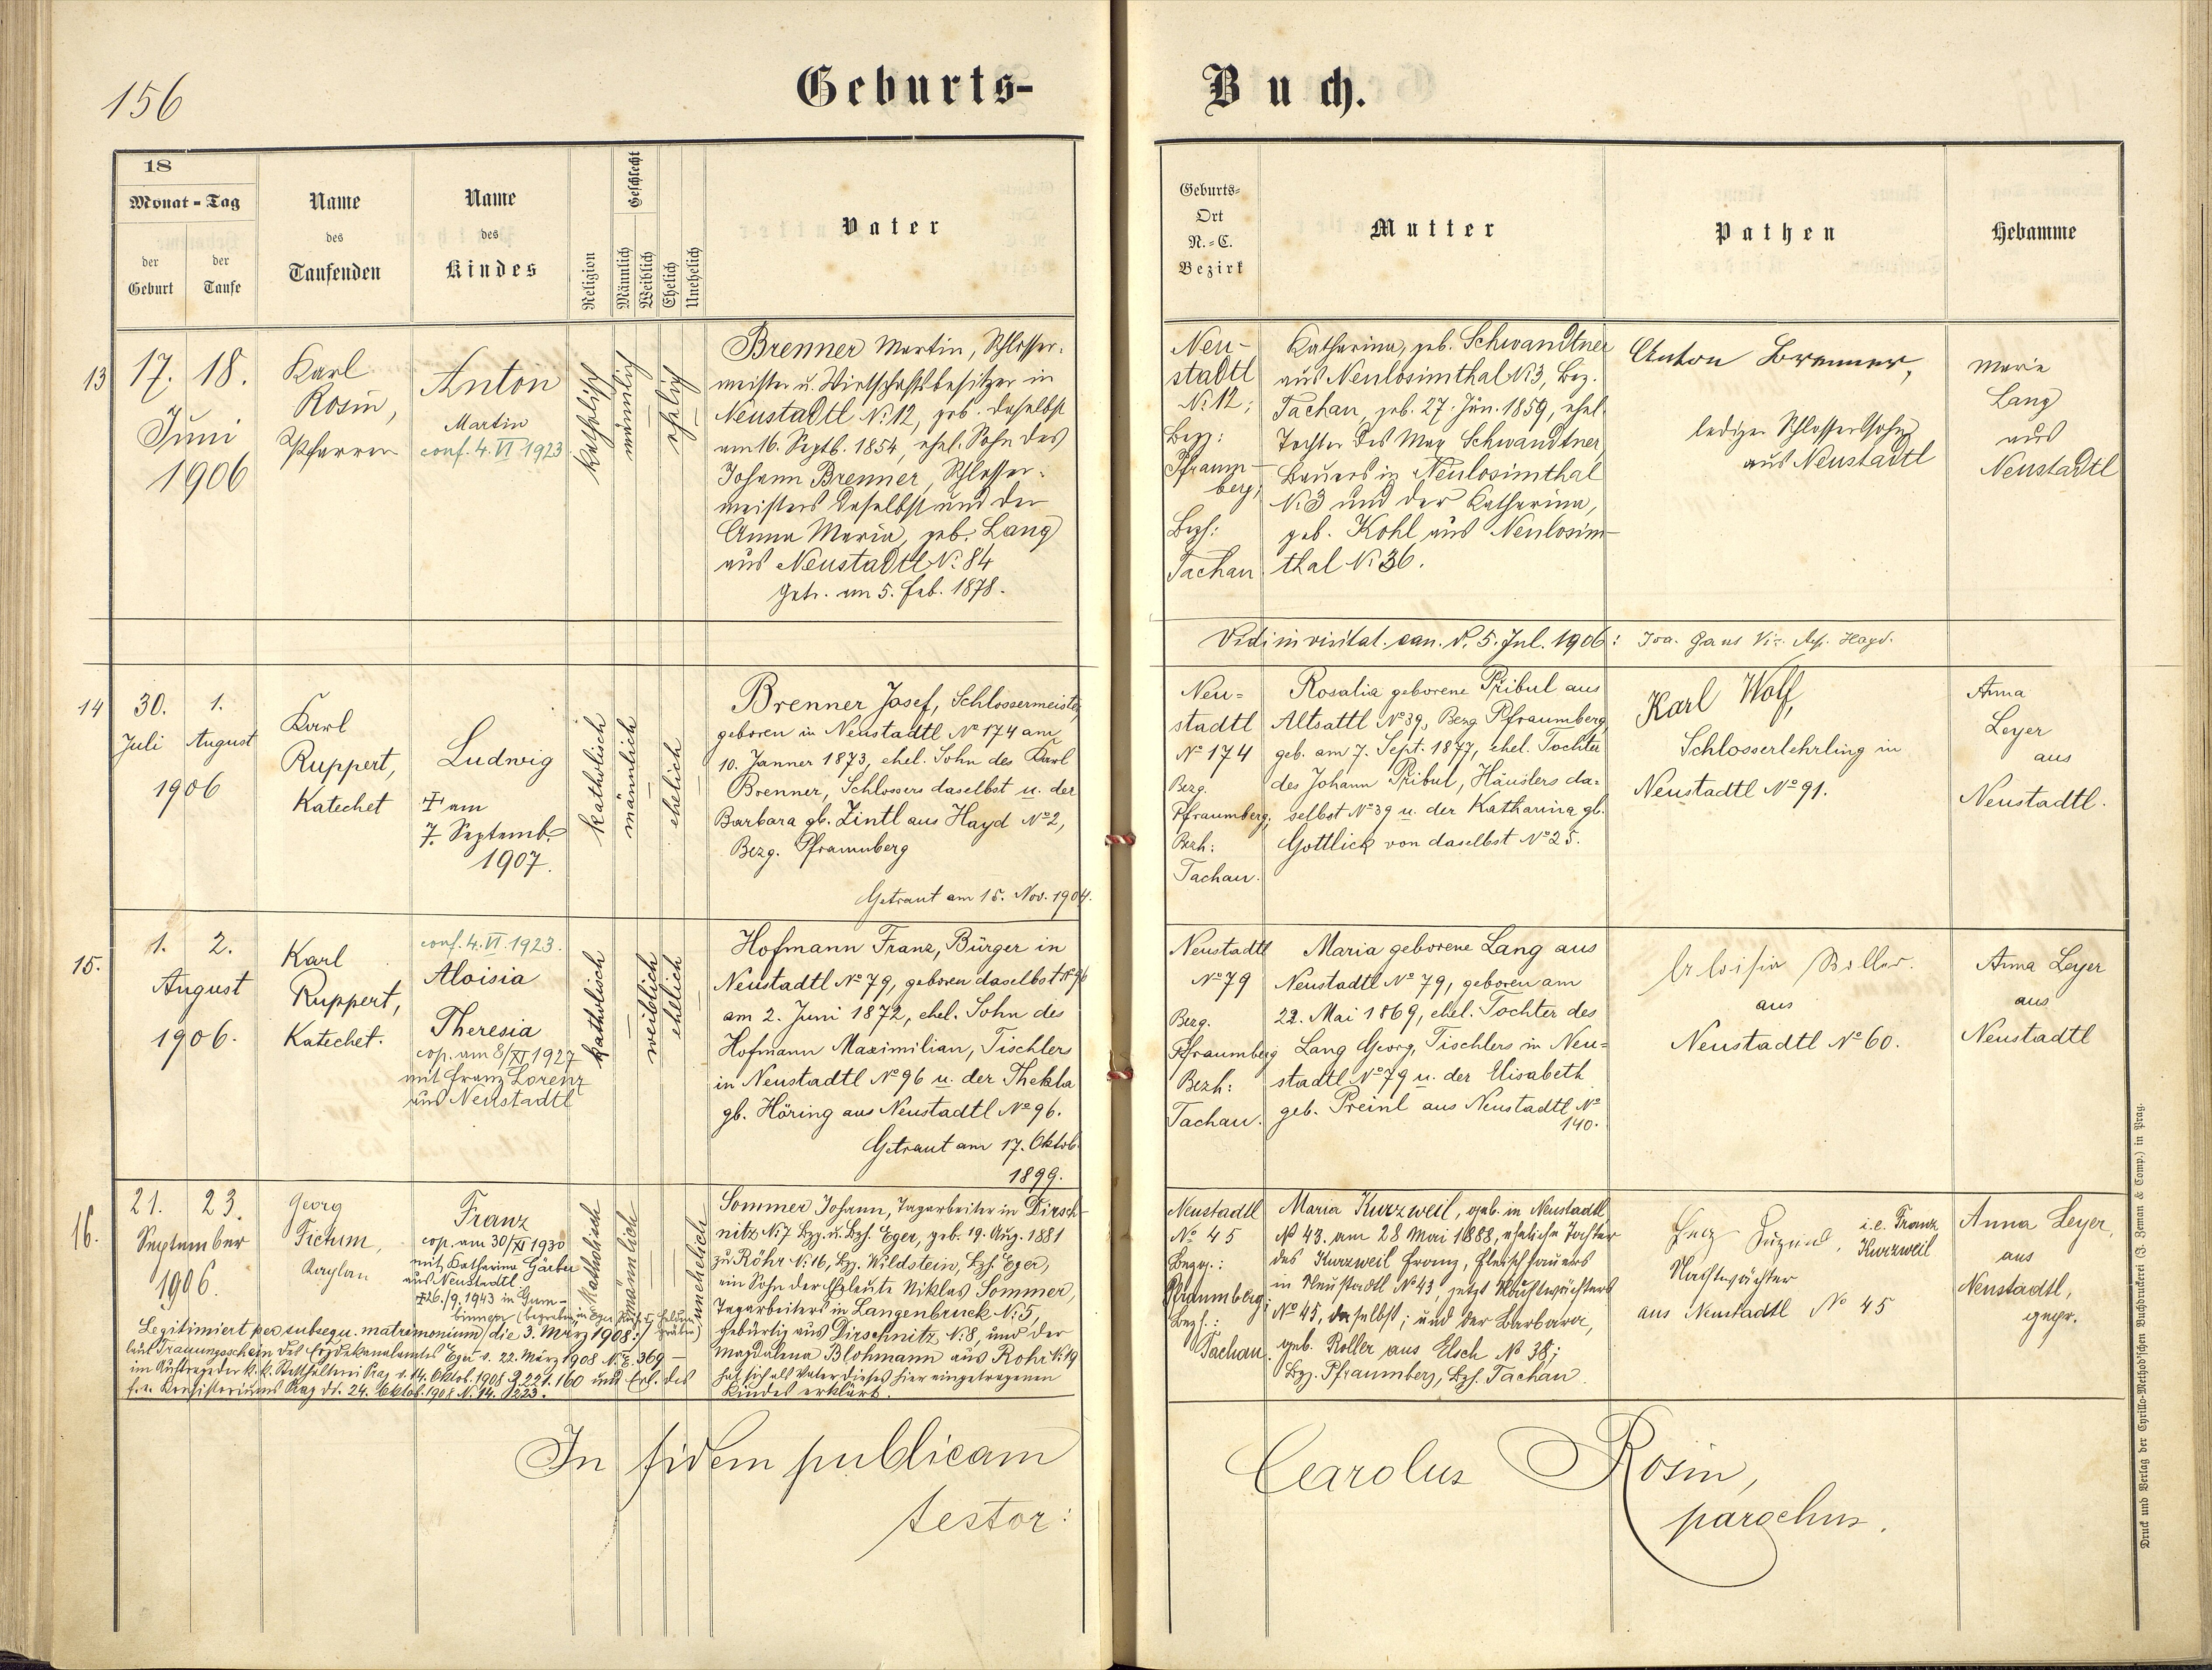 156
Geburts-
Buch.
18
Monat - Tag
der Geburt
der Taufe
Name
des
Taufenden
Name
des
Kindes
Religion
Geschlecht
Männlich
Weiblich
Ehelich
Unehelich
Vater
Geburts-
Ort
N.-C.
Bezirk
Mutter
Pathen
Hebamme
13
17. 18.
Juni
1906
Karl
Rosin,
Pfarrer
Anton
Martin
conf. 4. VI 1923
katholisch
männlich
ehelich
Brenner Martin, Schlosser-
meister u. Wirtschaftsbesitzer in
Neustadtl N. 12, geb. daselbst
am 16. Septb. 1854, ehel. Sohn des
Johann Brenner, Schlosser-
meisters daselbst und der
Anna Maria, geb. Lang
aus Neustadtl N. 84
Getr. am 5. Feb. 1878.
Neu-
stadtl
N. 12;
Bezg:
Pfraum-
berg;
Bezh:
Tachau
Katharina, geb. Schwandtner
aus Neulosimthal N. 3, Bez.
Tachau, geb. 27. Jän. 1859, ehel.
Tochter des Max Schwandtner,
Bauers in Neulosimthal
N. 3 und der Katharina,
geb. Kohl aus Neulosim-
thal N. 36.
Anton Brenner,
lediger Schlosserssohn
aus Neustadtl
Marie
Lang
aus
Neustadtl
Vidi in visitat. can. d. 5. Jul. 1906: Joa. Gans
14
30. 1.
Juli August
1906
Karl
Ruppert,
Katechet
Ludwig
† am
7. Septemb.
1907.
katholisch
mänlich
ehelich
Brenner Josef, Schlossermeister,
geboren in Neustadtl № 174 am
10. Jänner 1873, ehel. Sohn des Karl
Brenner, Schlossers daselbst u. der
Barbara gb. Zintl aus Hayd № 2,
Bezg. Pfraumberg
Getraut am 15. Nov. 1904.
Neu=
stadtl
№ 174
Bezg.
Pfraumberg;
Bezh:
Tachau.
Rosalia geborene Pribul aus
Altsattl № 39, Bezg. Pfraumberg
geb. am 7. Sept. 1877, ehel. Tochter
des Johann Pribul, Häuslers da-
selbst № 39 u. der Katharina gb.
Gottlick von daselbst № 25.
Karl Wolf,
Schlosserlehrling in
Neustadtl № 91.
Anna
Leyer
aus
Neustadtl.
15.
1. 2.
August
1906.
Karl
Ruppert,
Katechet.
conf. 4. VI. 1923.
Aloisia
Theresia
cop. am 8/XI 1927
mit Franz Lorenz
aus Neustadtl
katholisch
weiblich
ehelich
Hofmann Franz, Bürger in
Neustadtl № 79, geboren daselbst № 96
am 2. Juni 1872, ehel. Sohn des
Hofmann Maximilian, Tischlers
in Neustadtl № 96 u. der Thekla
gb. Höring aus Neustadtl № 96.
Getraut am 17. Oktob.
1899.
Neustadtl
№ 79
Bezg.
Pfraumberg
Bezh:
Tachau.
Maria geborene Lang aus
Neustadtl № 79, geboren am
22. Mai 1869, ehel. Tochter des
Lang Georg, Tischlers in Neu=
stadtl № 79 u. der Elisabeth
geb. Preinl aus Neustadtl №
140.
Aloisia Roller.
aus
Neustadtl № 60.
Anna Leyer
aus
Neustadtl
16.
21. 23.
September
1906.
Georg
Fictum,
Kaplan
Franz
cop. am 30/XI 1930
mit Katharina Gärber
aus Neustadtl
†26./9. 1943 in Gum-
binnen (begraben in Eger
Katholisch
männlich
unehelich
Legitimiert per subsequ. matrimonium die 3. März 1908:/
laut Trauungsschein des Erzdekanalamtes Eger v. 22. März 1908 N. E. 369 –
im Auftrage der k. k. Statthalterei Prag v. 14. Oktob. 1908 Z. 221.160 und Erl. des
f. e. Konsistoriums Prag dt. 24. Oktob. 1908 N. 14.223.
Sommer Johann, Tagarbeiter in Dirsch-
nitz N. 7 Bzg. u. Bzh. Eger, geb. 19. Aug. 1881
zu Röhr N. 16, Bz. Wildstein, Bzh. Eger,
ein Sohn der Eheleute Niklas Sommer,
Tagarbeiters in Langenbruck N. 5,
gebürtig aus Dirschnitz N. 8, und der
Magdalena Blohmann aus Rohr N. 19
hat sich als Vater dieses hier eingetragenen
Kindes erklärt.
Neustadtl
№ 45
Bezg.:
Pfraumberg;
Bezh.:
Tachau.
Maria Kurzweil, geb. in Neustadtl
№ 43. am 28 Mai 1888, eheliche Tochter
des Kurzweil Franz, Fleischhauers
in Neustadtl № 43, jetzt Nachtwächters
№ 45, daselbst; und der Barbara,
geb. Roller aus Elsch № 38;
Bzg. Pfraumberg, Bzh. Tachau.
i.e. Franz
Kurzweil
Nachtwächter
aus Neustadtl № 45
Anna Leyer,
aus
Neustadtl,
gepr.
In fidem publicam
testor:
Carolus Rosin,
parochus.
Druck und Verlag der Cyrillo-Method'schen Buchdruckerei (J. Zeman & Comp.) in Prag.